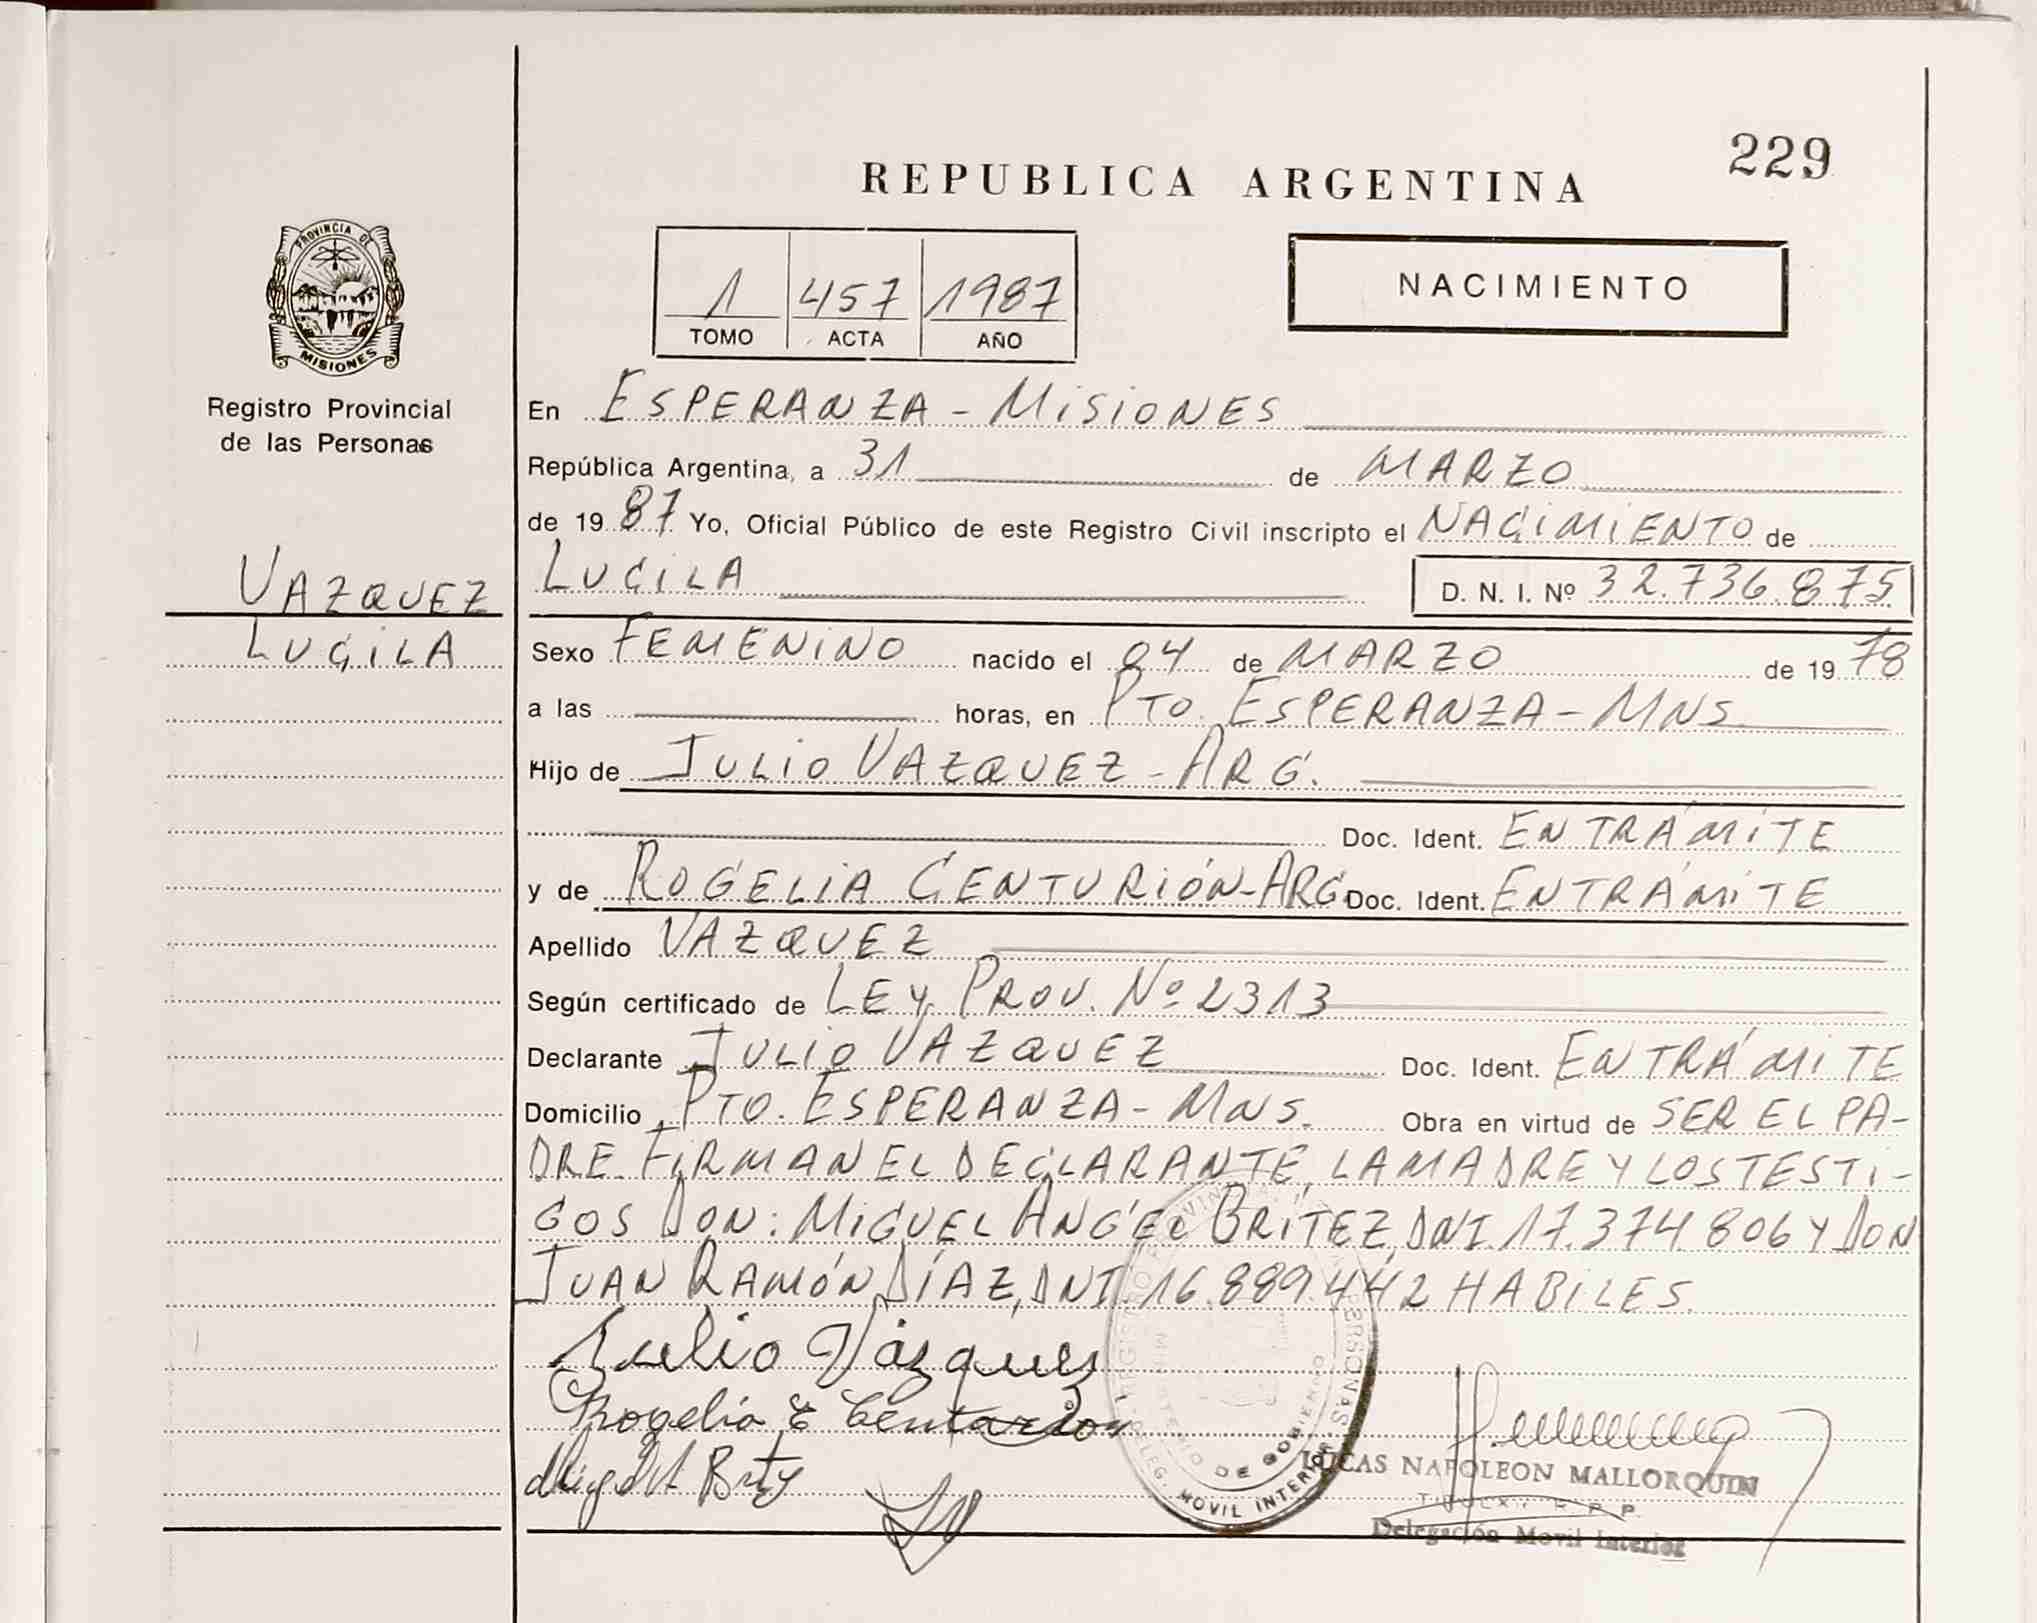 229
REPUBLICA ARGENTINA
PROVINCIA DE
MISIONES
Registro Provincial
de las Personas
1 457 1987
TOMO ACTA AÑO
NACIMIENTO
En ESPERANZA - MISIONES
República Argentina, a 31 de MARZO
de 1987 Yo, Oficial Público de este Registro Civil inscripto el NACIMIENTO de
VAZQUEZ
LUCILA
LUCILA D. N. I. Nº 32.736.875
Sexo FEMENINO nacido el 04 de MARZO de 1978
a las horas, en PTO. ESPERANZA - MNS.
Hijo de JULIO VAZQUEZ - ARG.
Doc. Ident. EN TRÁMITE
y de ROGELIA CENTURIÓN - ARG Doc. Ident. EN TRÁMITE
Apellido VAZQUEZ
Según certificado de LEY PROV. Nº 2313
Declarante JULIO VAZQUEZ Doc. Ident. EN TRÁMITE
Domicilio PTO. ESPERANZA - MNS. Obra en virtud de SER EL PA-
DRE. FIRMAN EL DECLARANTE, LA MADRE Y LOS TESTI-
GOS DON: MIGUEL ANGEL BRITEZ, DNI. 17.374.806 Y DON
JUAN RAMÓN DÍAZ, DNI. 16.889.442 HABILES.
Julio Vázquez
Rogelia E Centurion
REGISTRO PROVINCIAL PERSONAS
MINISTERIO DE GOBIERNO
DELEG. MOVIL INTERIOR
LUCAS NAPOLEON MALLORQUIN
R. P. P.
Delegación Movil Interior